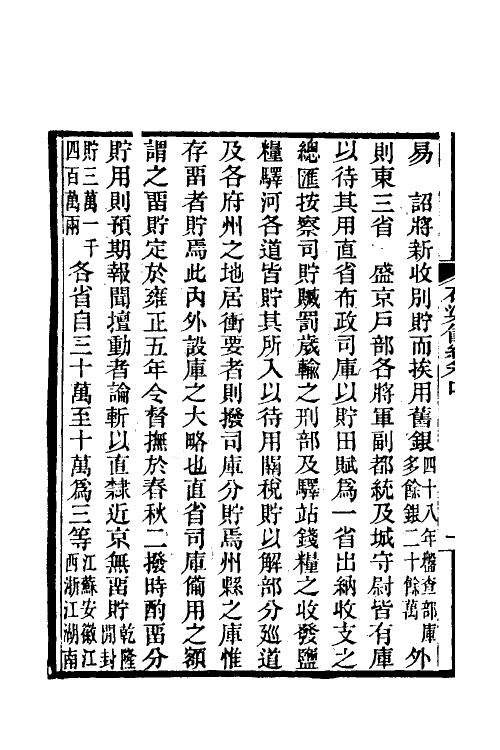 易　詔將新收別貯而挨用舊銀四十八年盤查部庫多餘銀二十餘萬外
則東三省　盛京戶部各將軍副都統及城守尉皆有庫
以待其用直省布政司庫以貯田賦爲一省出納收支之
總匯按察司貯贓罰歲輸之刑部及驛站錢糧之收發鹽
糧驛河各道皆貯其所入以待用關稅貯以解部分廵道
及各府州之地居衝要者則撥司庫分貯焉州縣之庫惟
存畱者貯焉此內外設庫之大略也直省司庫備用之額
謂之畱貯定於雍正五年令督撫於春秋二撥時酌畱分
貯用則預期報聞壇動者論斬以直隸近京無畱貯乾隆開封
貯三萬一千四百萬兩各省自三十萬至十萬爲三等江蘇安徽江西浙江湖南